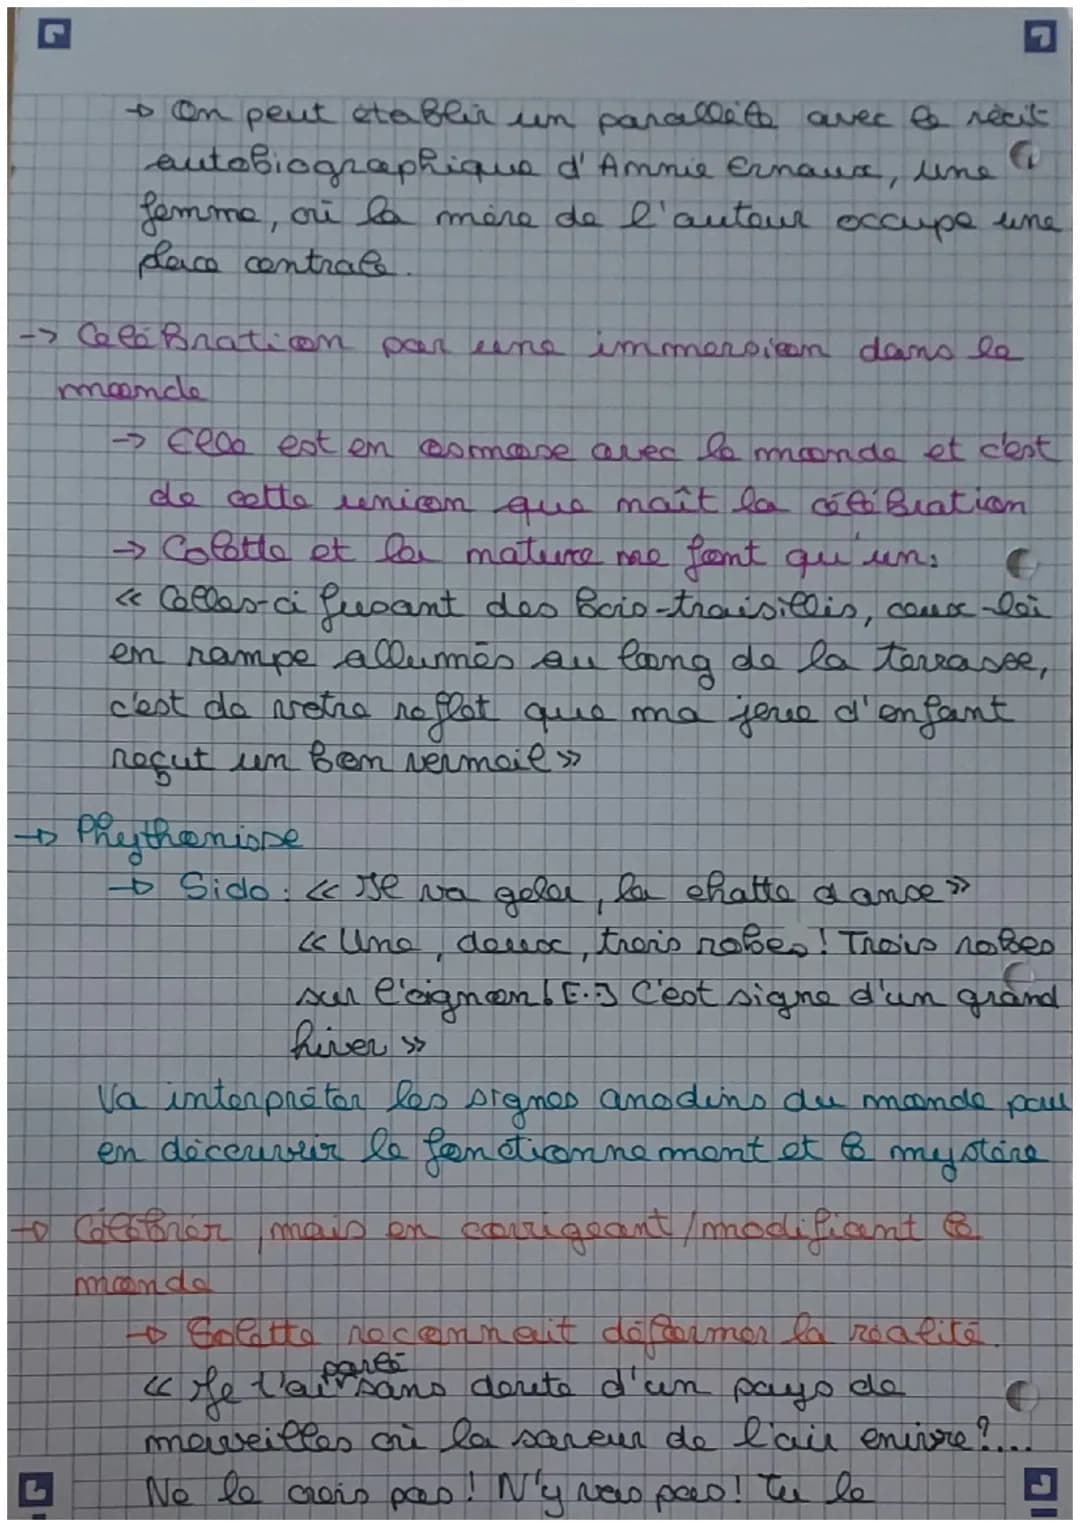 → On peut établir un parallèle avec le récit
autobiographique d'Annie Ernaux, une
femme, où la mère de l'auteur occupe une
place centrale.
-> Célébration par une immersion dans le
monde
-> Elle est en osmose avec le monde et c'est
de cette union que naît la célébration
-> Colette et la nature ne font qu'un:
« Celles-ci fusant des bois-traisillis, ceux-loi
en rampe allumés au long de la terrasse,
c'est de votre reflet que ma joue d'enfant
reçut un don vermeil »
→ Phythonisse
→ Sido : « Il va geler, la chatte danse »
« Une, deux, trois robes ! Trois robes
sur l'oignon ! [...] C'est signe d'un grand
hiver »
Va interpréter les signes anodins du monde pour
en découvrir le fonctionnement et le mystère
→ Célébrer, mais en corrigeant/modifiant le
monde
→ Colette reconnait déformer la réalité.
« Je t'ai parlé sans doute d'un pays de
merveilles où la saveur de l'air enivre ?....
Ne le crois pas ! N'y vas pas ! Tu le